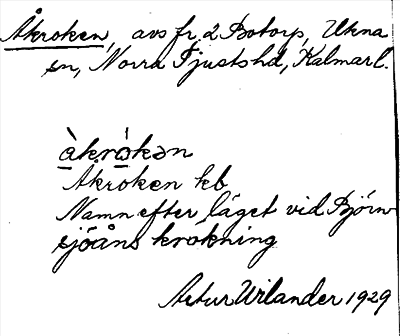 Åkroken, avs fr 2 Botorp, Ukna
sn, Norra Tjustshd, Kalmar l.
àkrókən
Åkroken kb
Namn efter läget vid Björn-
sjöåns krokning
Artur Wilander 1929